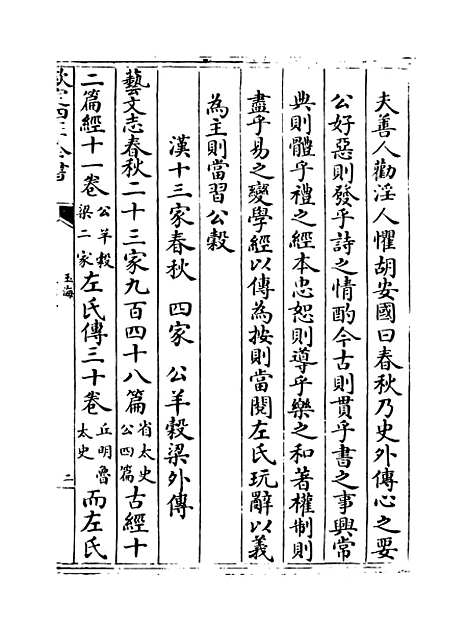 夫善人勸淫人懼胡安國曰春秋乃史外傳心之要
公好惡則發乎詩之情酌今古則貫乎書之事興常
典則體乎禮之經本忠恕則導乎樂之和著權制則
盡乎易之變學經以傳為按則當閱左氏玩辭以義
為主則當習公穀
漢十三家春秋 四家 公羊穀梁外傳
藝文志春秋二十三家九百四十八篇省太史公四篇古經十
二篇經十一卷公羊穀梁二家左氏傳三十卷丘明魯太史而左氏
欽定四庫全書
玉海
二